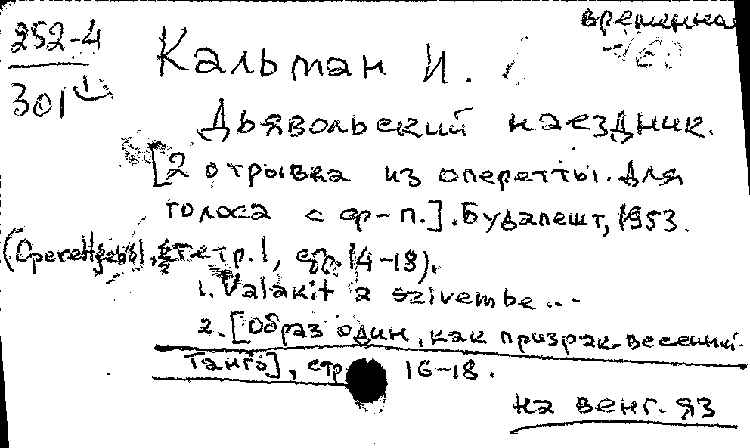 252-4
301
временная
Кальман И.
Дьявольский наездник.
[2 отрывка из оперетты. Для
голоса с фр-п.]. Будапешт, 1953.
тетр. 1, стр. 14-18).
1. Valakit a szivembe...
2. [Образ один, как призрак весенний.
Танго], стр 16-18.
на венг. яз